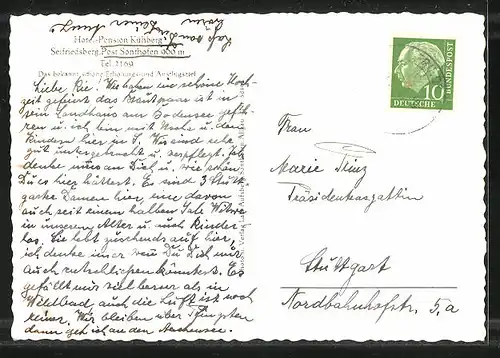 Hotel-Pension Kühberg
Seifriedsberg, Post Sonthofen 900 m
Tel. 1169
Das bekannt ruhige Erholungs- und Ausflugsziel
Liebe Wir haben eine schöne Hoch-
zeit gefeiert das Brautpaar ist in
sein Landhaus am Bodensee gefah-
ren u. ich bin mit u. den
Kindern hier in Wir sind sehr
gut untergebracht u. verpflegt. Ich
denke immer an Dich u. wie schön
Du es hier hättest. Es sind 3 Stutt-
garter Damen hier, eine davon
auch seit einem halben Jahr Witwe
in unserem Alter u. auch kinder-
los. Sie lebt zusehends auf hier,
ich denke immer wenn Du Dich nur
auch entschließen könntest. Es
gefällt mir viel besser als in
Wildbad, auch die Luft ist noch
reiner. Wir bleiben über Pfingsten
dann geht es an den Achensee.
DEUTSCHE
BUNDESPOST
10
Frau
Marie
Präsidentengattin
Stuttgart
Nordbahnhofstr. 5a